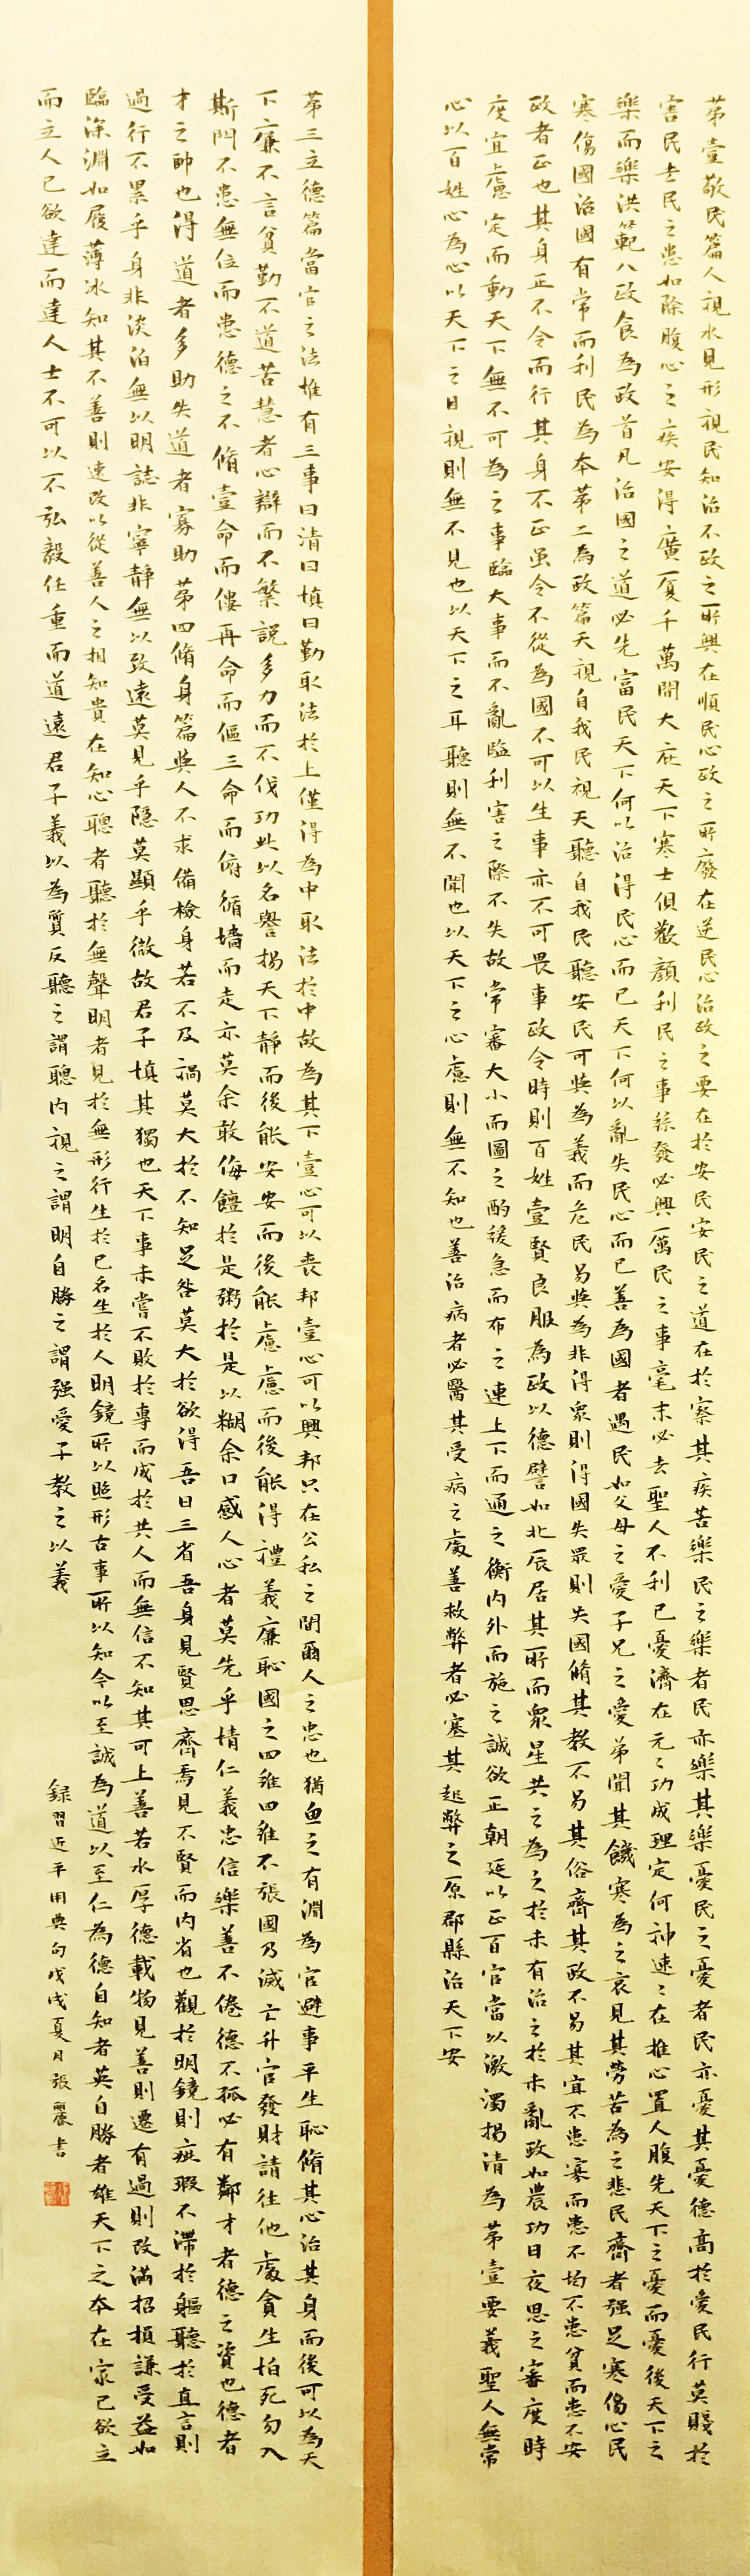 第壹敬民篇人視水見形視民知治不政之所興在順民心政之所廢在逆民心治政之要在於安民安民之道在於察其疾苦樂民之樂者民亦樂其樂憂民之憂者民亦憂其憂德高於愛民行莫賤於
害民去民之患如除腹心之疾安得廣厦千萬間大庇天下寒士俱歡顏利民之事絲發必興厲民之事毫末必去聖人不利己憂濟在元元功成理定何神速速在推心置人腹先天下之憂而憂後天下之
樂而樂洪範八政食為政首凡治國之道必先富民天下何以治得民心而已天下何以亂失民心而已善為國者遇民如父母之愛子兄之愛弟聞其饑寒為之哀見其勞苦為之悲民齊者强足寒傷心民
寒傷國治國有常而利民為本第二為政篇天視自我民視天聽自我民聽安民可與為義而危民易與為非得眾則得國失眾則失國脩其教不易其俗齊其政不易其宜不患寡而患不均不患貧而患不安
政者正也其身正不令而行其身不正虽令不從為國不可以生事亦不可畏事政令時則百姓壹賢良服為政以德譬如北辰居其所而眾星共之為之於未有治之於未亂政如農功日夜思之審度時
度宜慮定而動天下無不可為之事臨大事而不亂臨利害之際不失故常審大小而圖之酌緩急而布之連上下而通之衡内外而施之誠欲正朝廷以正百官當以激濁揚清為第壹要義聖人無常
心以百姓心為心以天下之目視則無不見也以天下之耳聽則無不聞也以天下之心慮則無不知也善治病者必醫其受病之處善救弊者必塞其起弊之原郡縣治天下安
第三立德篇當官之法惟有三事曰清曰慎曰勤取法於上僅得為中取法於中故為其下壹心可以喪邦壹心可以興邦只在公私之間爾人之忠也猶魚之有淵為官避事平生恥脩其心治其身而後可以為天
下廉不言貧勤不道苦慧者心辯而不繁説多力而不伐功此以名譽揚天下靜而後能安安而後能慮慮而後能得禮義廉恥國之四維四維不張國乃滅亡升官發財請往他處貪生怕死勿入
斯門不患無位而患德之不脩壹命而僂再命而傴三命而俯循墻而走亦莫余敢侮饘於是粥於是以糊余口感人心者莫先乎情仁義忠信樂善不倦德不孤必有鄰才者德之資也德者
才之帥也得道者多助失道者寡助第四脩身篇與人不求備檢身若不及禍莫大於不知足咎莫大於欲得吾日三省吾身見賢思齊焉見不賢而内省也觀於明鏡則疵瑕不滯於軀聽於直言則
過行不累乎身非淡泊無以明誌非寧靜無以致遠莫見乎隱莫顯乎微故君子慎其獨也天下事未嘗不敗於專而成於共人而無信不知其可上善若水厚德載物見善則遷有過則改滿招損謙受益如
臨深淵如履薄冰知其不善則速改以從善人之相知貴在知心聰者聽於無聲明者見於無形行生於己名生於人明鏡所以照形古事所以知今以至誠為道以至仁為德自知者英自勝者雄天下之本在家己欲立
而立人己欲達而達人士不可以不弘毅任重而道遠君子義以為質反聽之謂聰内視之謂明自勝之謂强愛子教之以義
録習近平用典句戊戌夏月張麗書